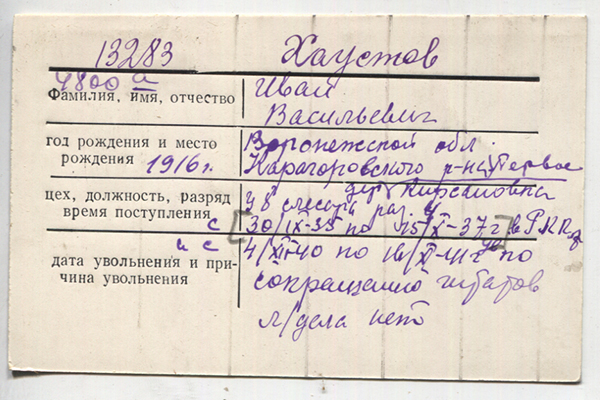 13283 Хаустов
4800 а Иван
Фамилия, имя, отчество Васильевич
год рождения и место Воронежской обл.
рождения 1916 г. Карагоровского р-на, Первое
дер. Кирсановка
цех, должность, разряд 48 слесарь раз. 4
время поступления с [30/IX-35 по 15/X-37 г] в РККА
и с 4/XI-40 по 16/XI-41 г по
дата увольнения и при-
чина увольнения сокращению штатов
л/дела нет